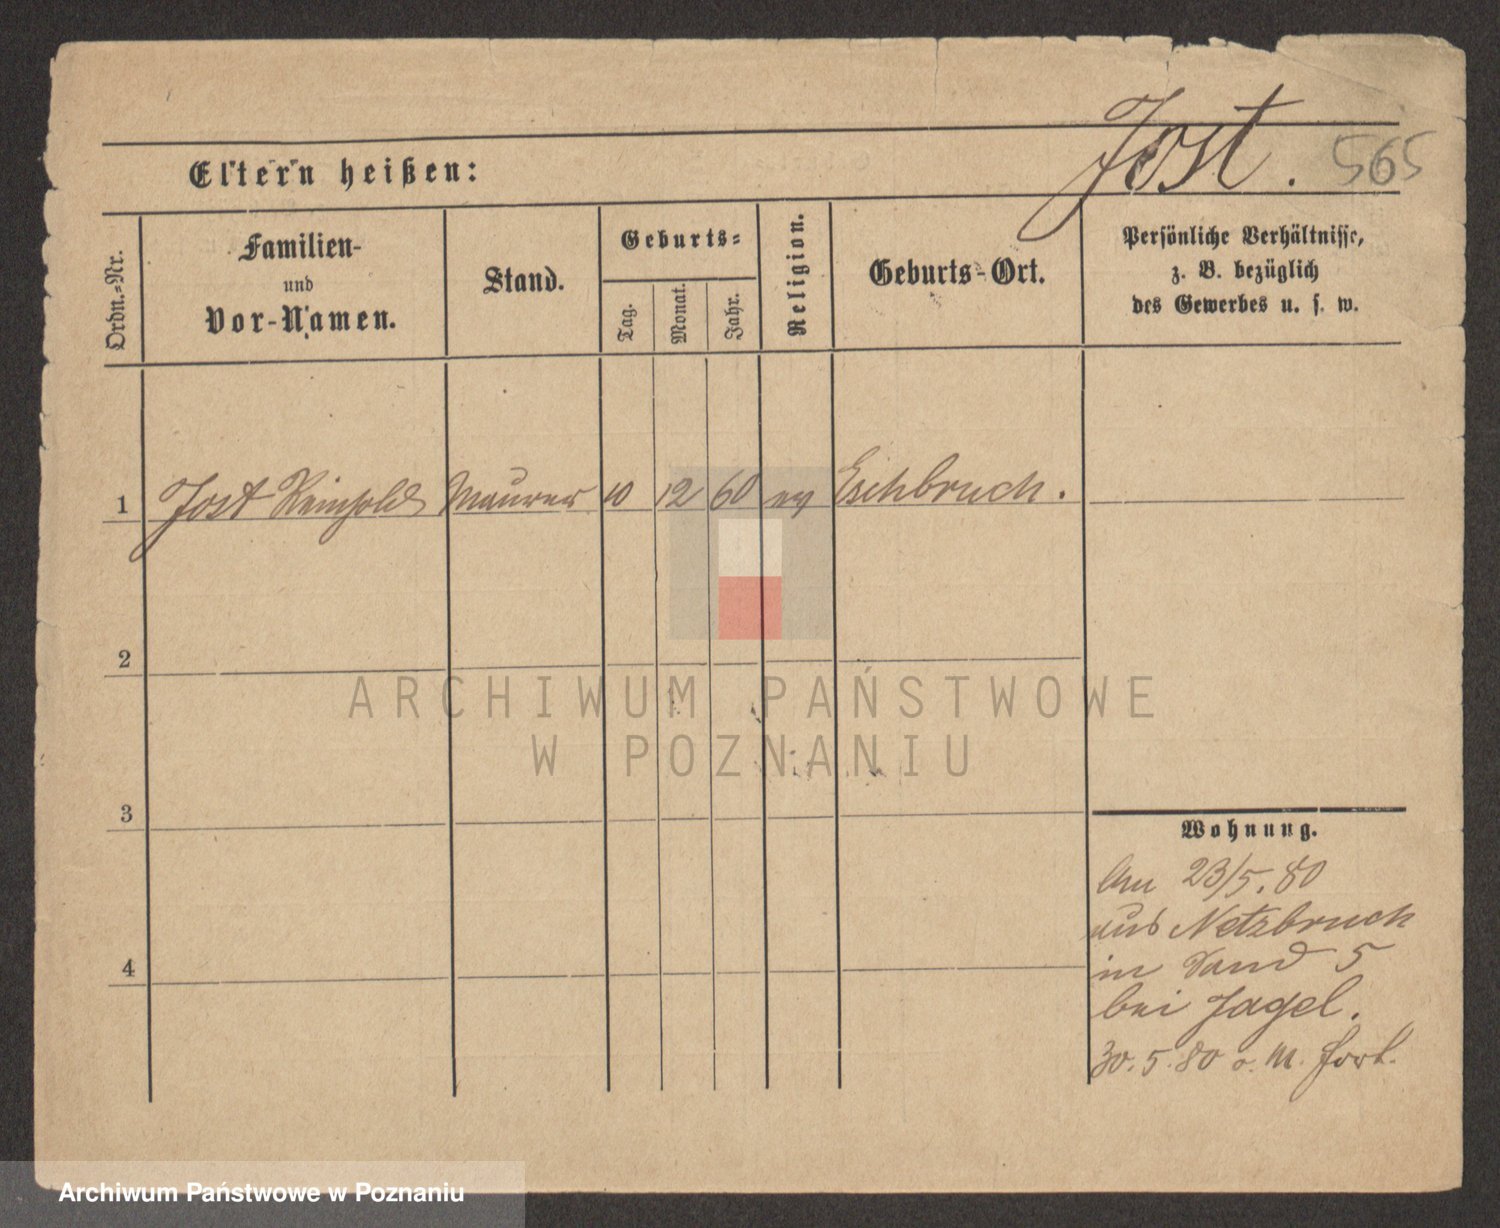 Jost. 565
Eltern heißen:
Ordn.=Nr.
Familien-
und
Vor-Namen.
Stand.
Geburts=
Tag.
Monat.
Jahr.
Religion.
Geburts-Ort.
Persönliche Verhältnisse,
z. B. bezüglich
des Gewerbes u. s. w.
1 Jost Reinhold Maurer 10 12 60 ev Eschbruch.
2
3
4
Wohnung.
Am 23/5. 80
aus Netzbruch
in Sand 5
bei Jagel.
30. 5. 80 o. M. fort.
ARCHIWUM PAŃSTWOWE
W POZNANIU
Archiwum Państwowe w Poznaniu